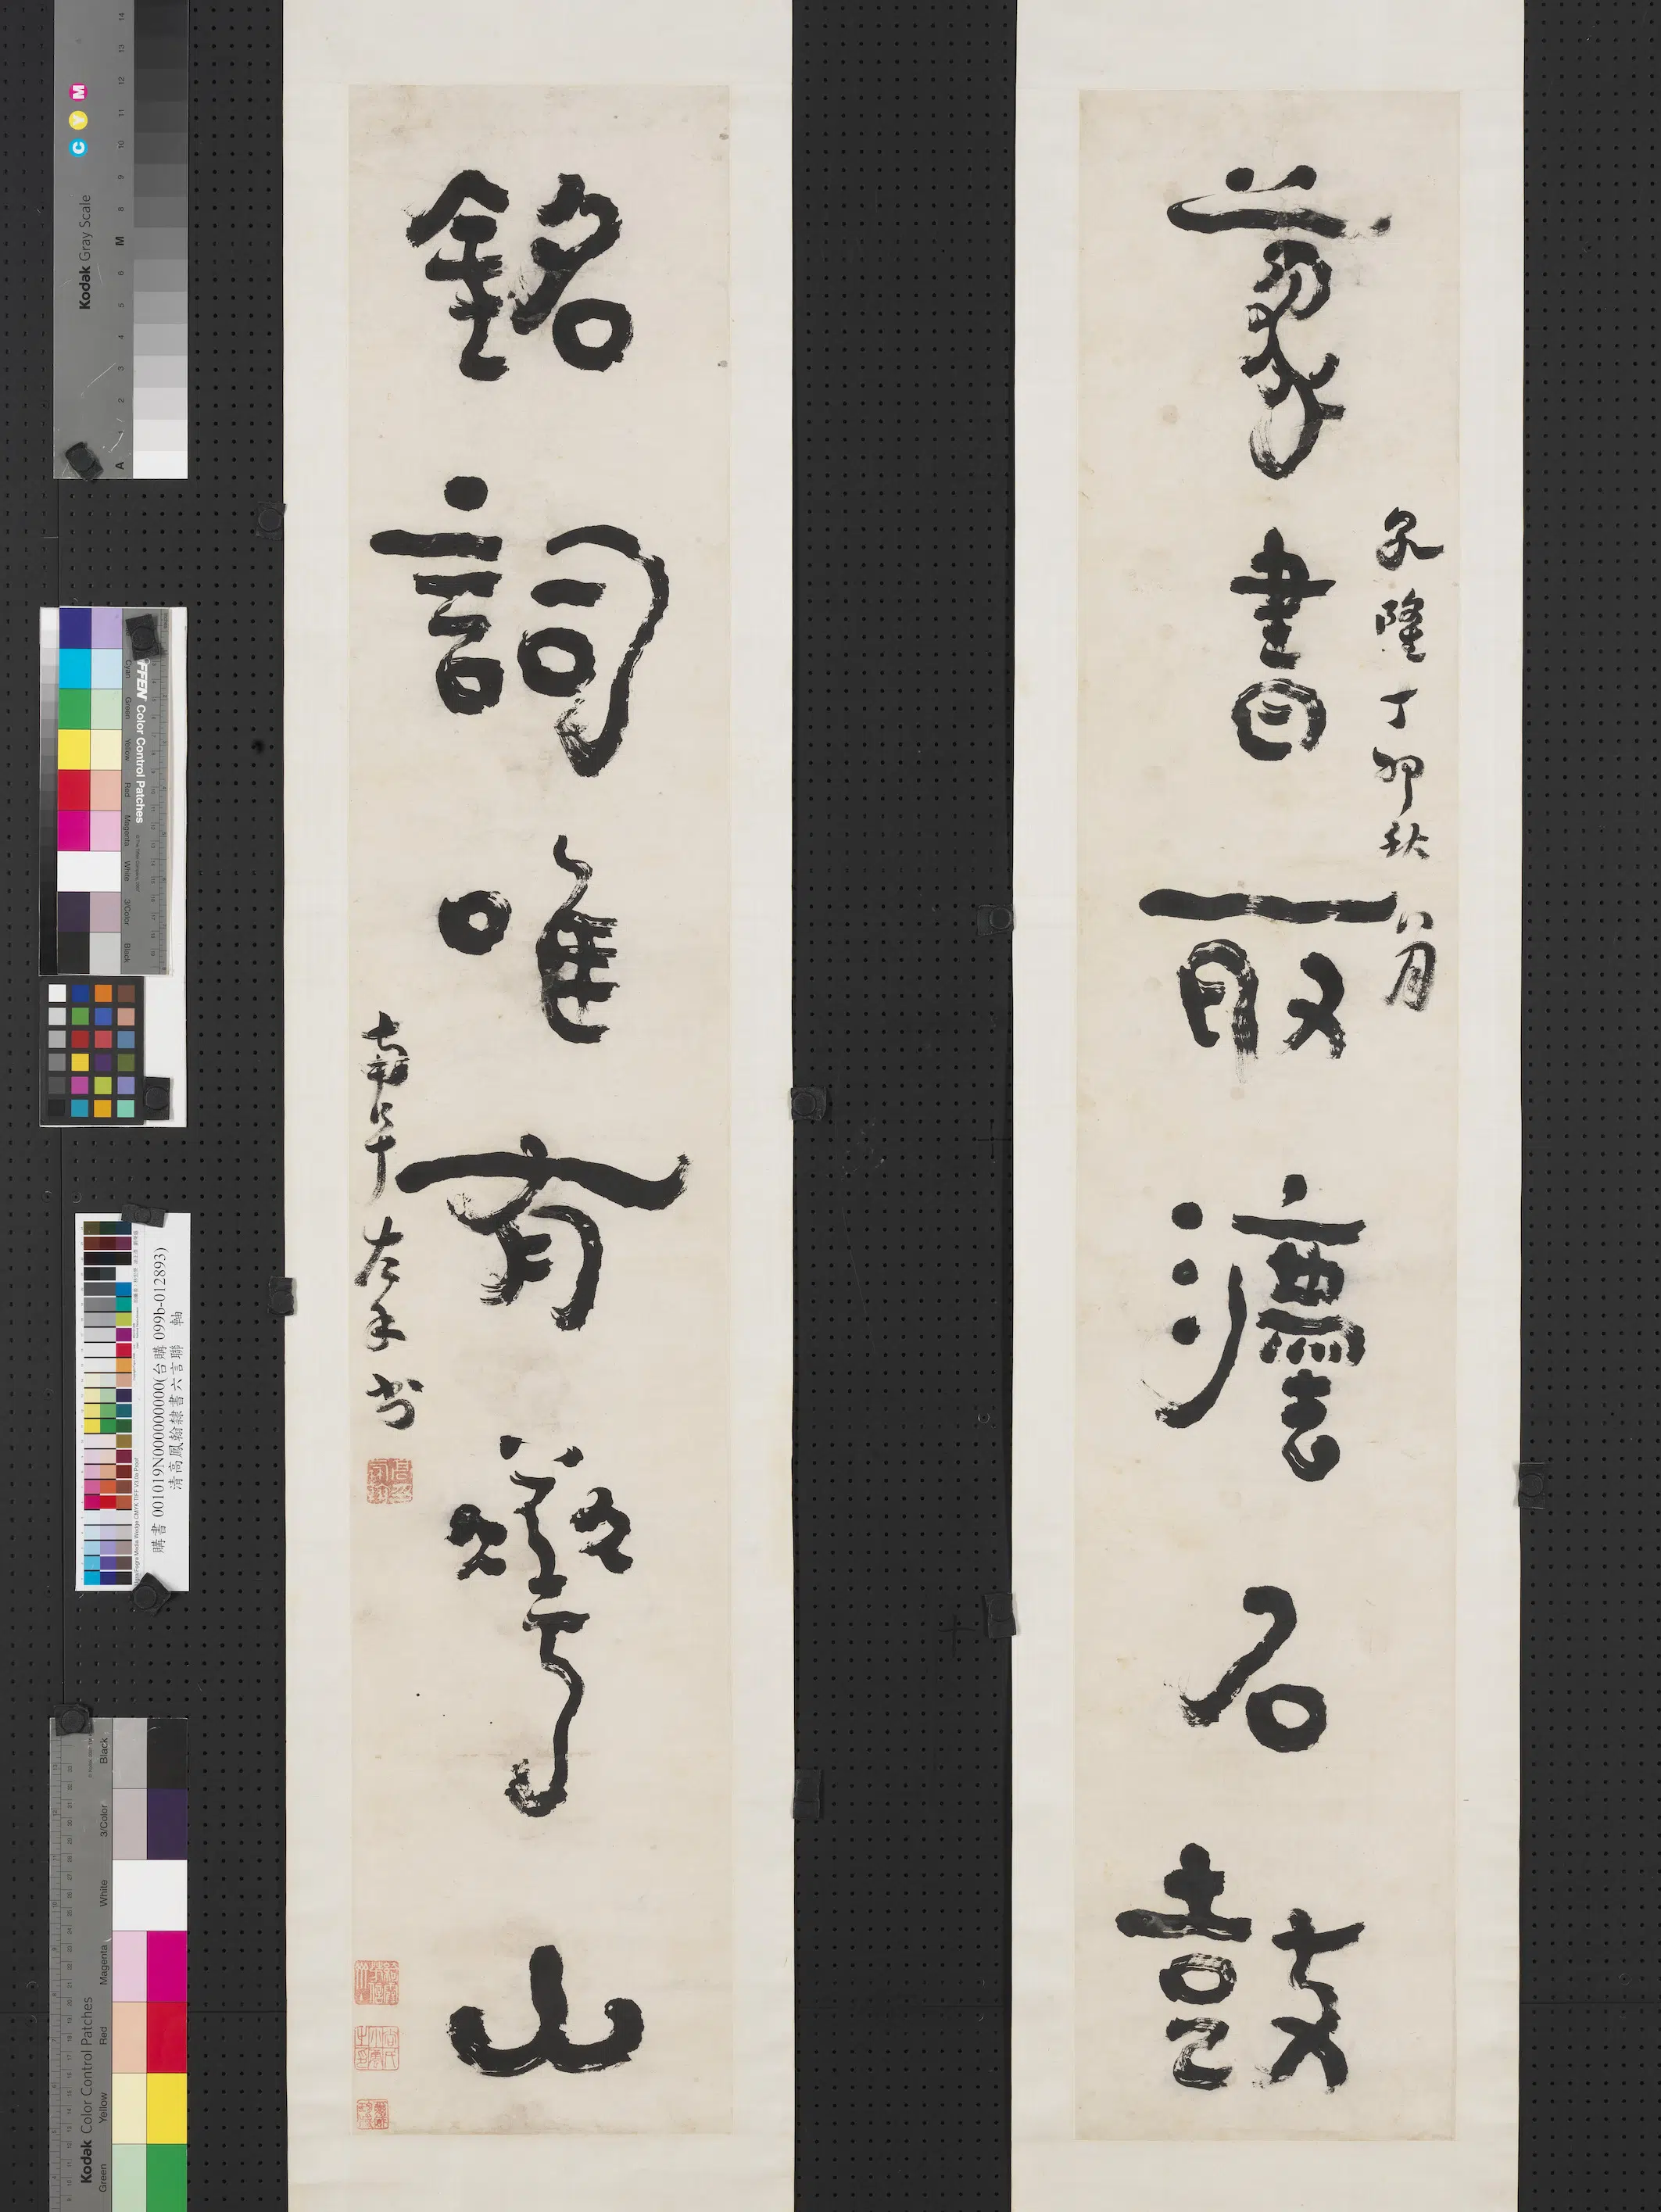 篆書最灋石鼓
乾隆丁卯秋八月
銘詞唯有華山
南阜左手书
購書 001019N000000000(台購 099b-012893)
清高鳳翰隸書六言聯 軸
Kodak Gray Scale
C Y M
A 1 2 3 4 5 6 M 8 9 10 11 12 13 14
TIFFEN Color Control Patches
Cyan Green Yellow Red Magenta White 3/Color Black
Kodak Color Control Patches
Green Yellow Red Magenta White 3/Color Black